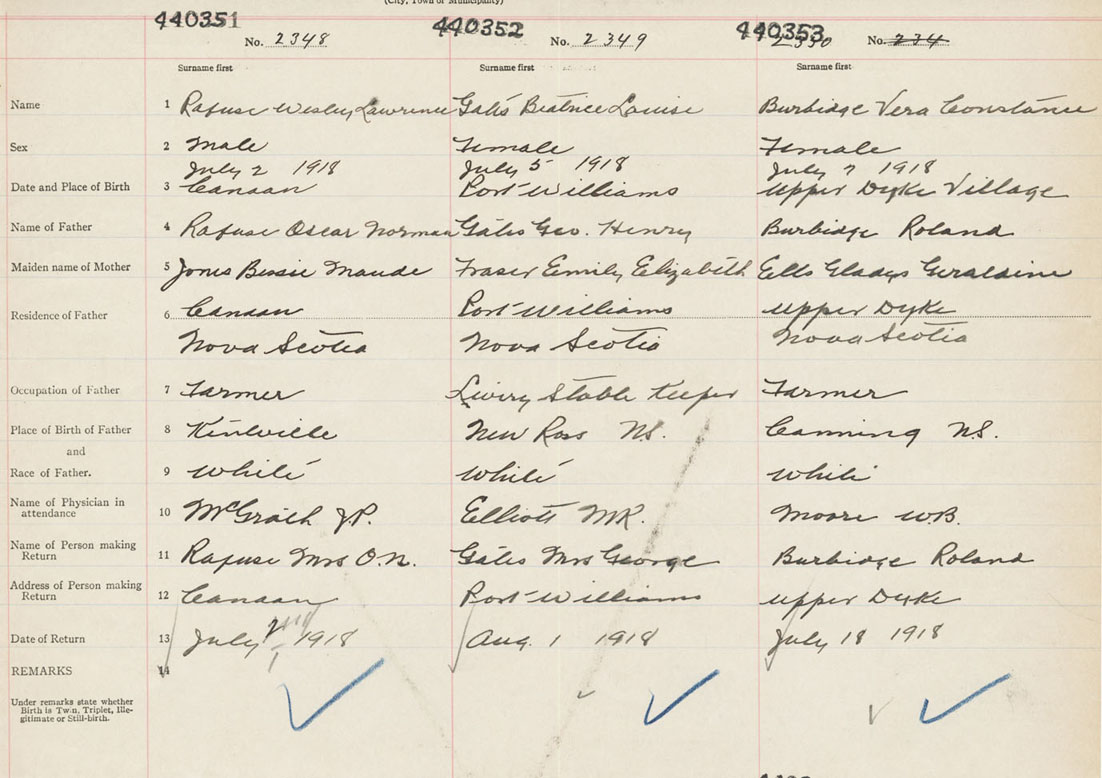 (City, Town or Municipality)
440351 440352 440353
No. 2348 No. 2349 2350 No. 234
Surname first Surname first Surname first
Name 1 Rafuse Wesley Lawrence Gates Beatrice Louise Burbidge Vera Constance
Sex 2 Male Female Female
July 2 1918 July 5 1918 July 7 1918
Date and Place of Birth 3 Canaan Port Williams Upper Dyke Village
Name of Father 4 Rafuse Oscar Norman Gates Geo. Henry Burbidge Roland
Maiden name of Mother 5 Jones Bessie Maude Fraser Emily Elizabeth Ells Gladys Geraldine
Residence of Father 6 Canaan Port Williams Upper Dyke
Nova Scotia Nova Scotia Nova Scotia
Occupation of Father 7 Farmer Livery Stable Keeper Farmer
Place of Birth of Father 8 Kentville New Ross N.S. Canning N.S.
and
Race of Father. 9 White White White
Name of Physician in
attendance 10 McGrath J.P. Elliott M.R. Moore W.B.
Name of Person making
Return 11 Rafuse Mrs O.N. Gates Mrs George Burbidge Roland
Address of Person making
Return 12 Canaan Port Williams Upper Dyke
Date of Return 13 July 1918 Aug. 1 1918 July 18 1918
REMARKS 14
Under remarks state whether
Birth is Twin, Triplet, Ille-
gitimate or Still-birth.